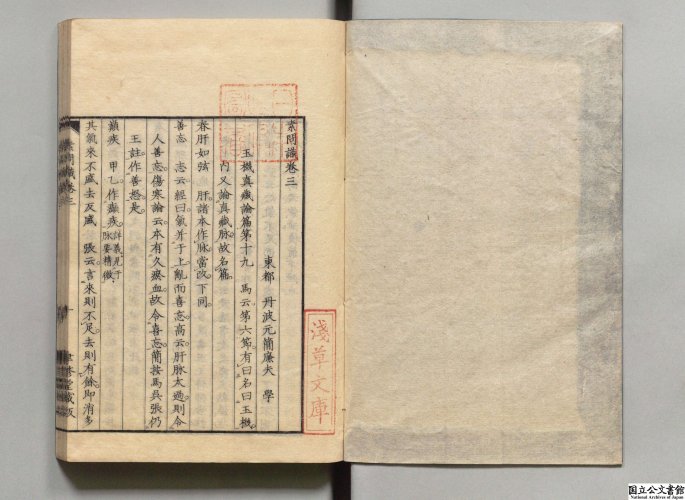 素問識卷三
東都 丹波元簡廉夫 學
玉機真藏論篇第十九 馬云第六節有曰名曰玉機
內又論真藏脉故名篇
春肝如弦 肝諸本作脉當改下同
善忘 志云經曰氣并于上亂而喜忘高云肝脉太過則令
人善忘傷寒論云本有久瘀血故令喜忘簡按馬吳張仍
王註作善怒是
巔疾 甲乙作癲疾詳義見于脉要精微
其氣來不盛去反盛 張云言來則不足去則有餘即消多
素問識卷三
一
聿修堂藏版
淺草文庫
国立公文書館
National Archives of Japan